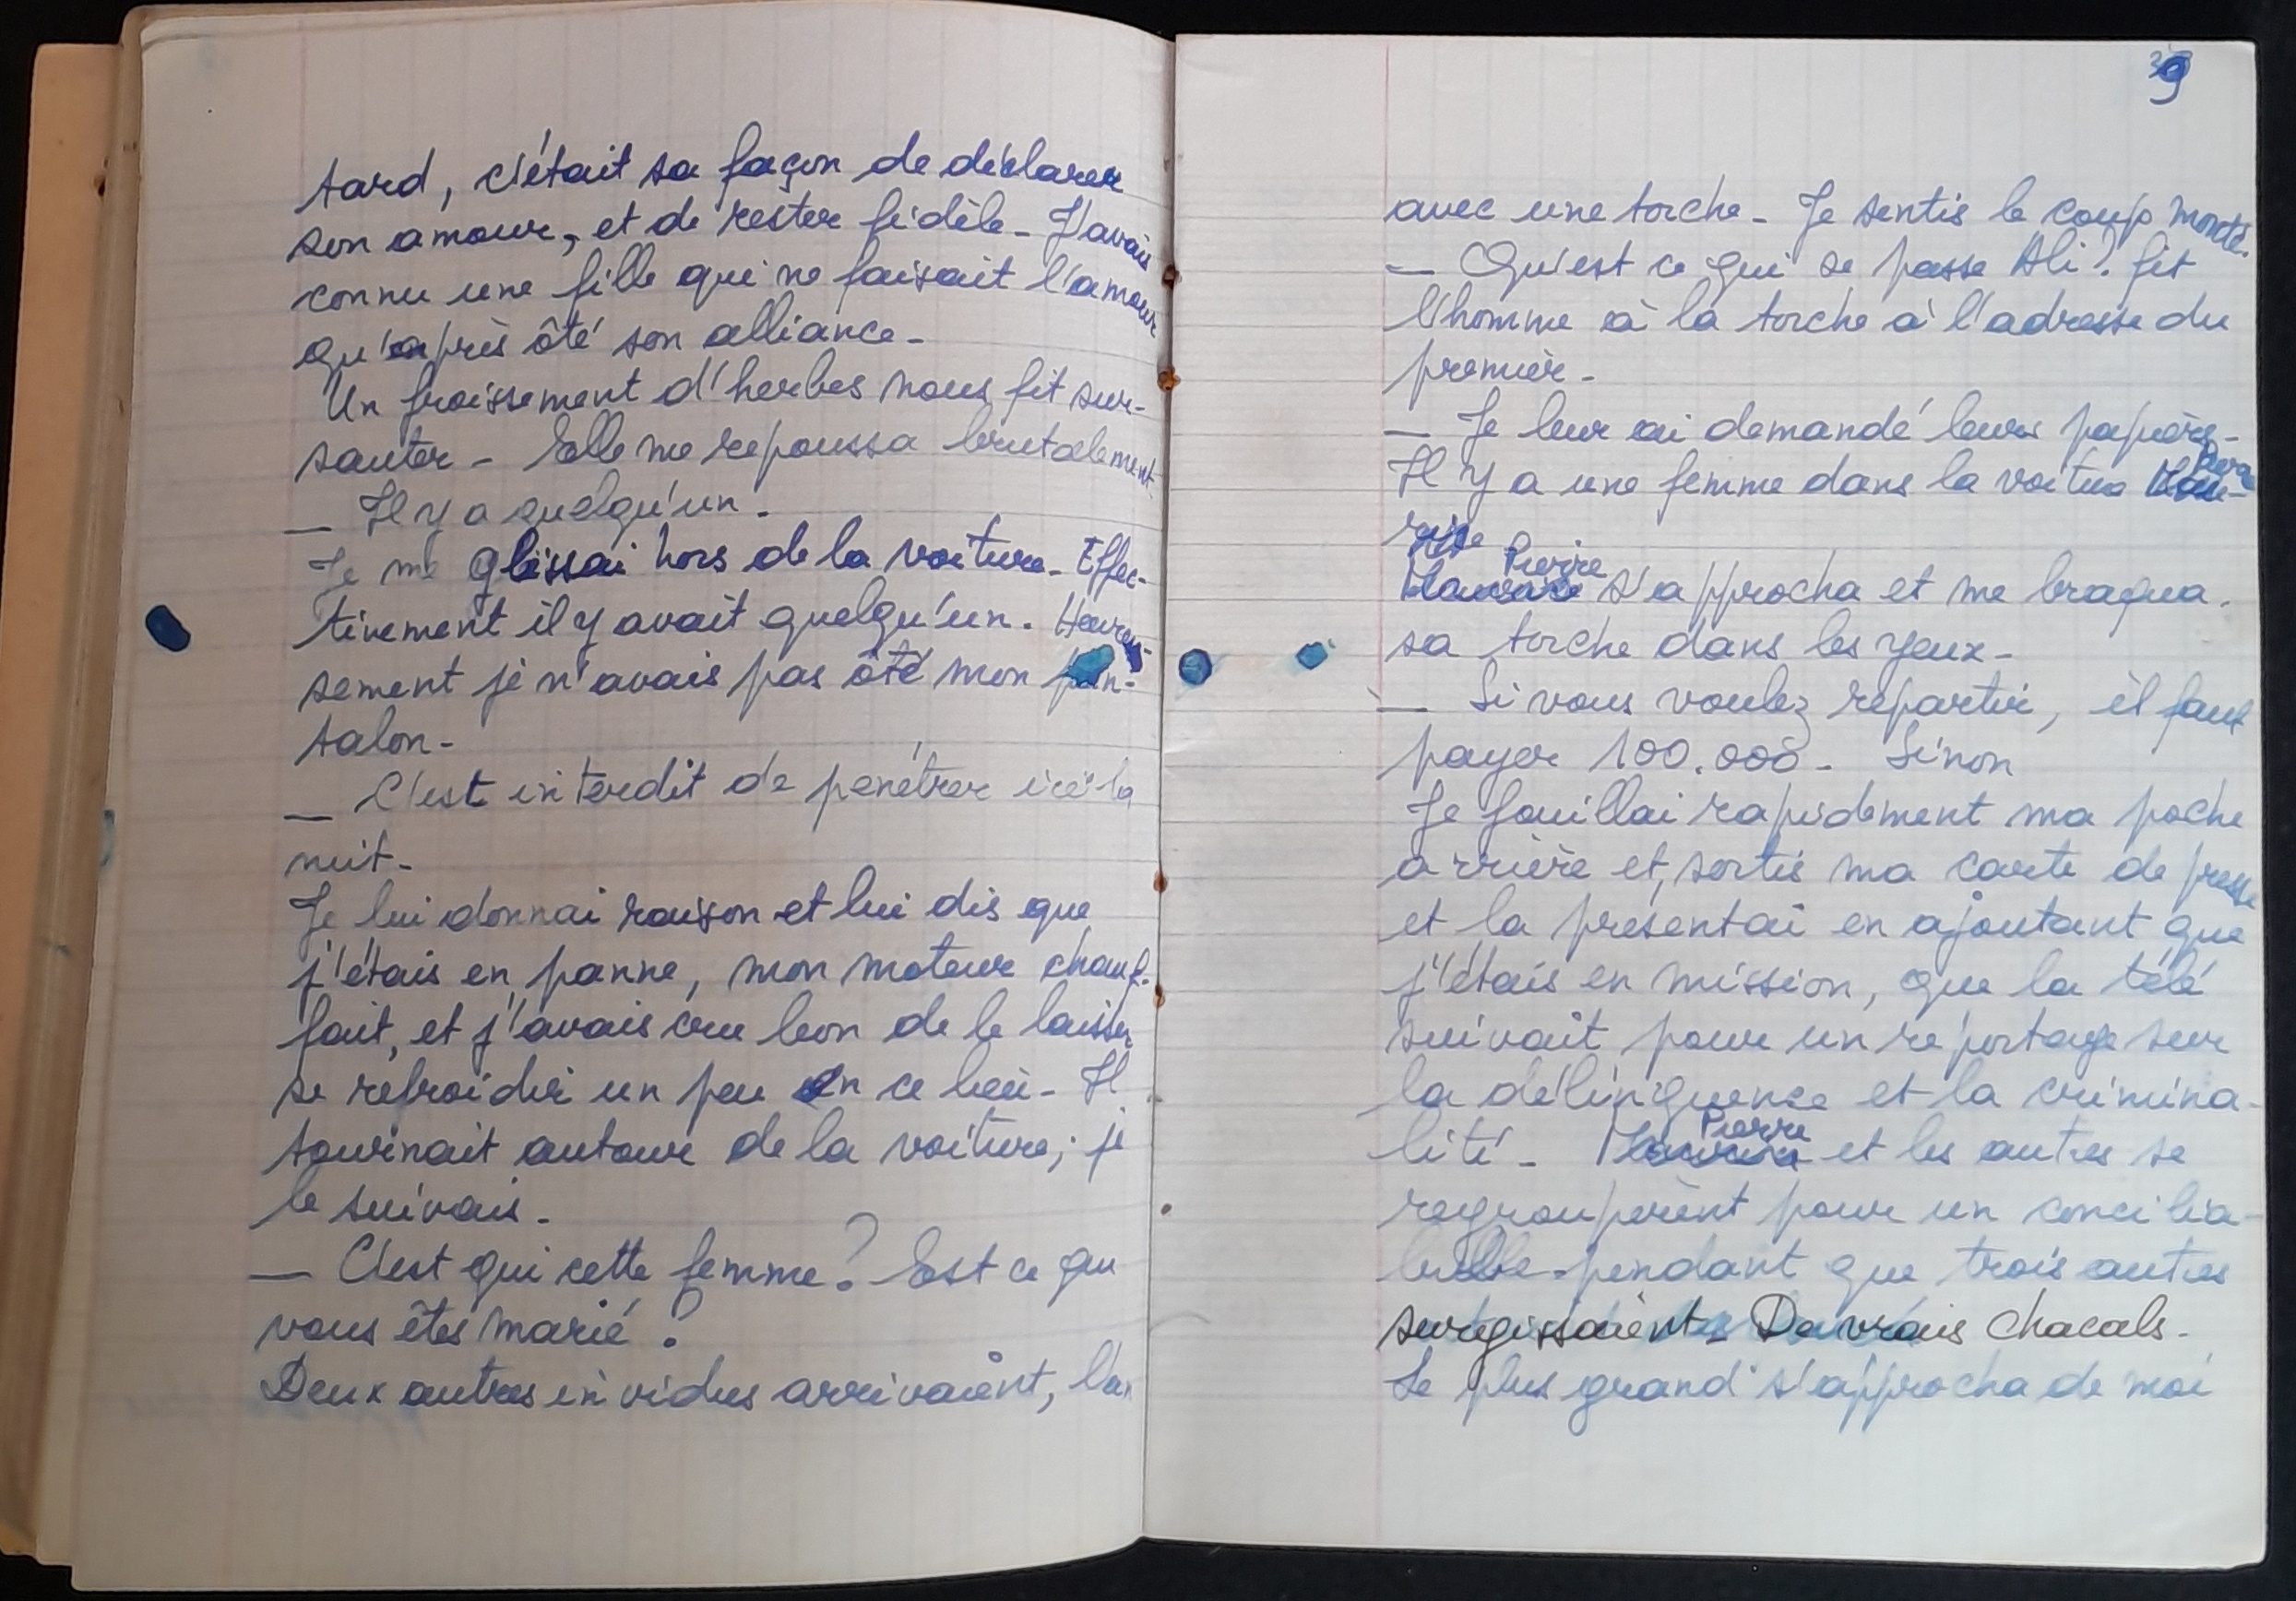 tard, c'était sa façon de déclarer
son amour, et de rester fidèle - J'avais
connu une fille qui ne faisait l'amour
qu'après ôté son alliance -
Un froissement d'herbes nous fit sur-
sauter - Elle me repoussa brutalement
— Il y a quelqu'un.
Je me glissai hors de la voiture - Effec-
tivement il y avait quelqu'un. Heureu-
sement je n'avais pas ôté mon pan-
talon -
— C'est interdit de penétrer ici la
nuit -
Je lui donnai raison et lui dis que
j'étais en panne, mon moteur chauf-
fait, et j'avais cru bon de le laisser
se refroidir un peu en ce lieu - Il
tournait autour de la voiture; je
le suivais -
— C'est qui cette femme? Est ce que
vous êtes marié?
Deux autres individus arrivaient, l'un
39
avec une torche - Je sentis le coup monté.
— Qu'est ce qui se passe Ali? fit
l'homme à la torche à l'adresse du
premier -
— Je leur ai demandé leurs papiers -
Il y a une femme dans la voiture
Pierre
s'approcha et me braqua
sa torche dans les yeux -
— Si vous voulez repartir, il faut
payer 100.000 - Sinon
Je fouillai rapidement ma poche
arrière et, sortis ma carte de presse
et la présentai en ajoutant que
j'étais en mission, que la télé
suivait pour un reportage sur
la délinquence et la crimina-
Pierre
lité - et les autres se
regroupèrent pour un concilia-
bule pendant que trois autres
surgissaient - De vrais chacals -
Le plus grand s'approcha de moi